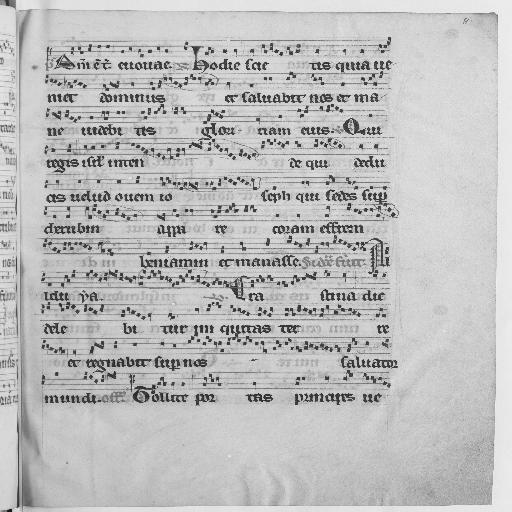 Am et euouae. Hodie scie tis quia ue
niet dominus et saluabit nos et ma
ne uidebi tis glori riam eius. Qui
regis isrl inten de qui dedu
cis uelud ouem io seph qui sedes sup
cherubin appa re coram effrem
beniamin et manasse.
uia. Cra stina die
dele bi tur ini quitas ter re
et regnabit sup nos saluator
mundi. Tollite por tas principes ue